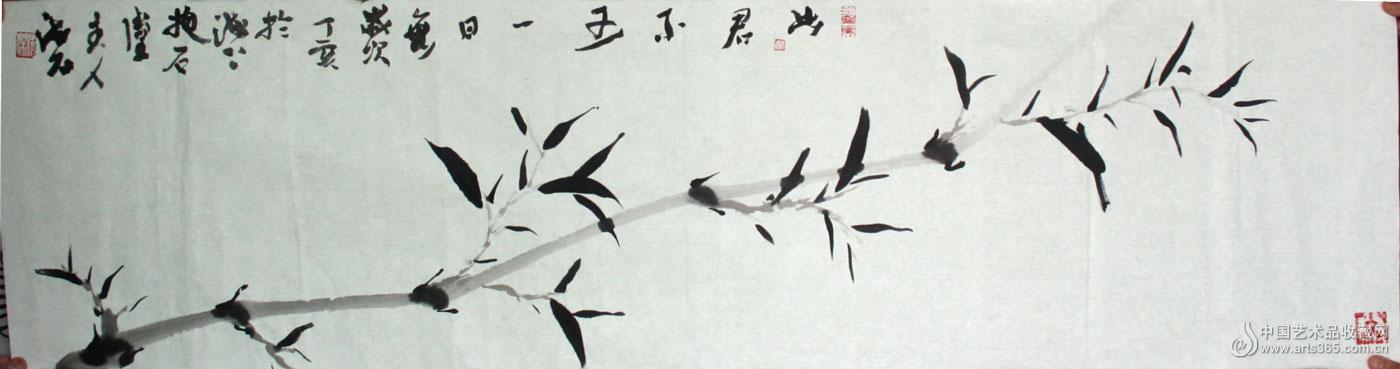 此
君
不
可
一
日
無
歲次
丁亥
於
抱石
主人
中国艺术品收藏网
www.arts365.com.cn